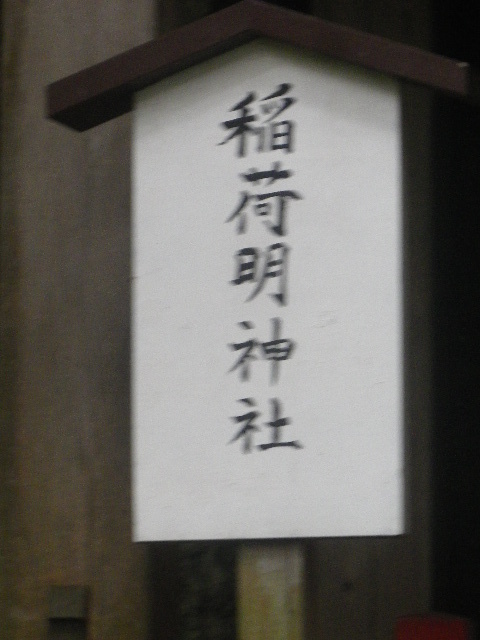 稲荷明神社